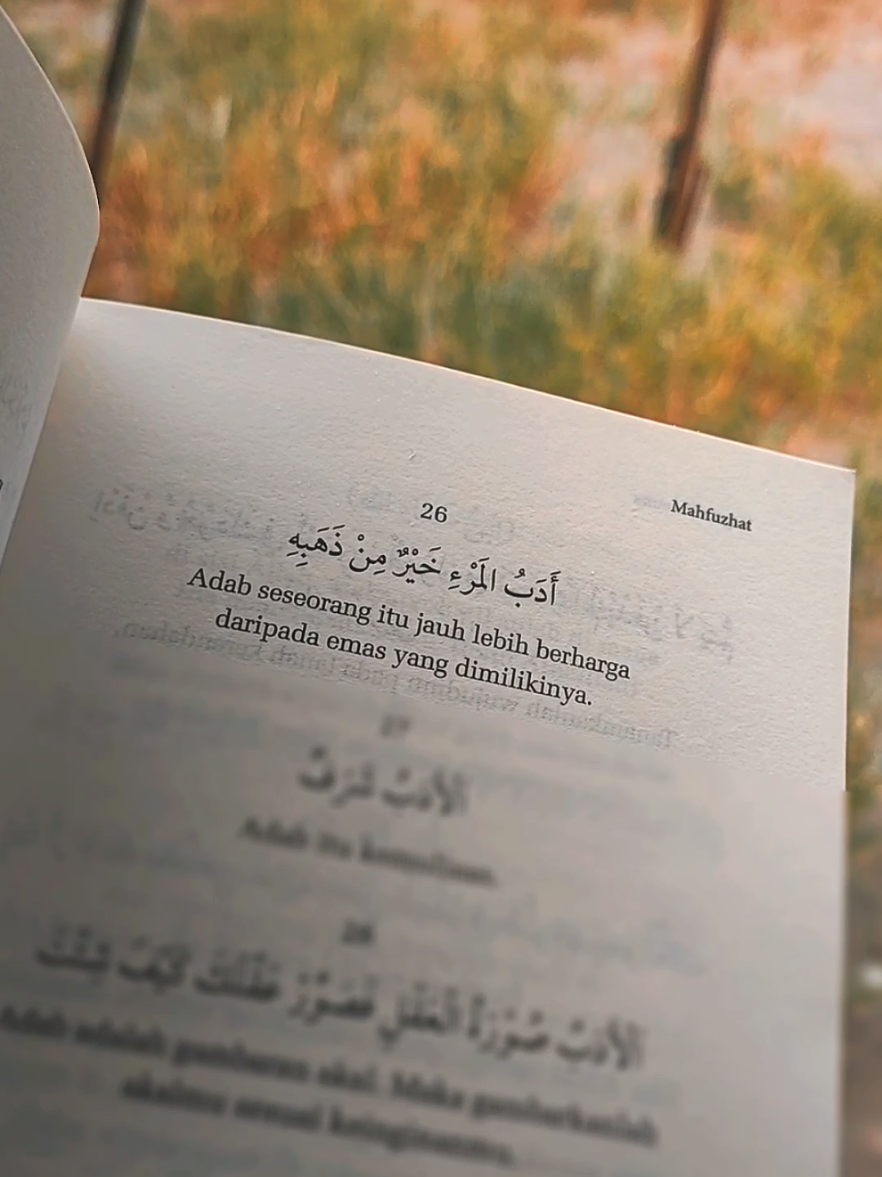 Mahfuzhat
26
أَدَبُ المَرْءِ خَيْرٌ مِنْ ذَهَبِهِ
Adab seseorang itu jauh lebih berharga
daripada emas yang dimilikinya.
27
الأَدَبُ شَرَفٌ
Adab itu kemuliaan.
28
الأَدَبُ صُوْرَةُ الْعَقْلِ فَصَوِّرْ عَقْلَكَ كَيْفَ شِئْتَ
Adab adalah gambaran akal. Maka gambarkanlah
akalmu sesuai keinginanmu.